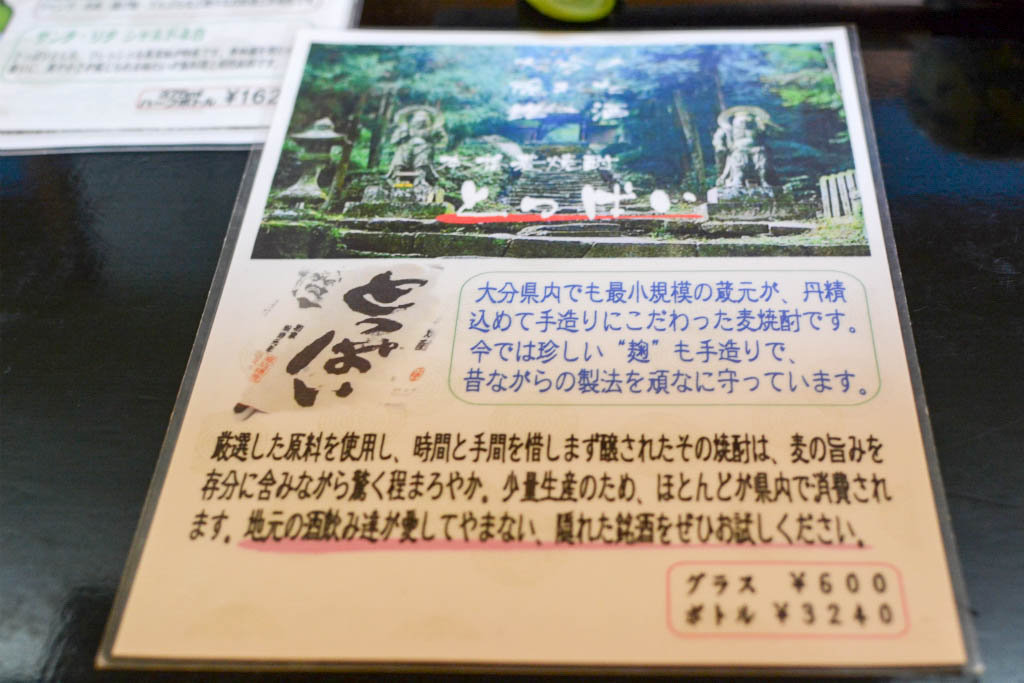 サンタ・リタ シャルドネ白
ハーフボトル ¥162
本格麦焼酎
とっぱい
とっぱい
大分県内でも最小規模の蔵元が、丹精
込めて手造りにこだわった麦焼酎です。
今では珍しい“麹”も手造りで、
昔ながらの製法を頑なに守っています。
厳選した原料を使用し、時間と手間を惜しまず醸されたその焼酎は、麦の旨みを
存分に含みながら驚く程まろやか。少量生産のため、ほとんどが県内で消費され
ます。地元の酒飲み達が愛してやまない、隠れた銘酒をぜひお試しください。
グラス ¥600
ボトル ¥3240